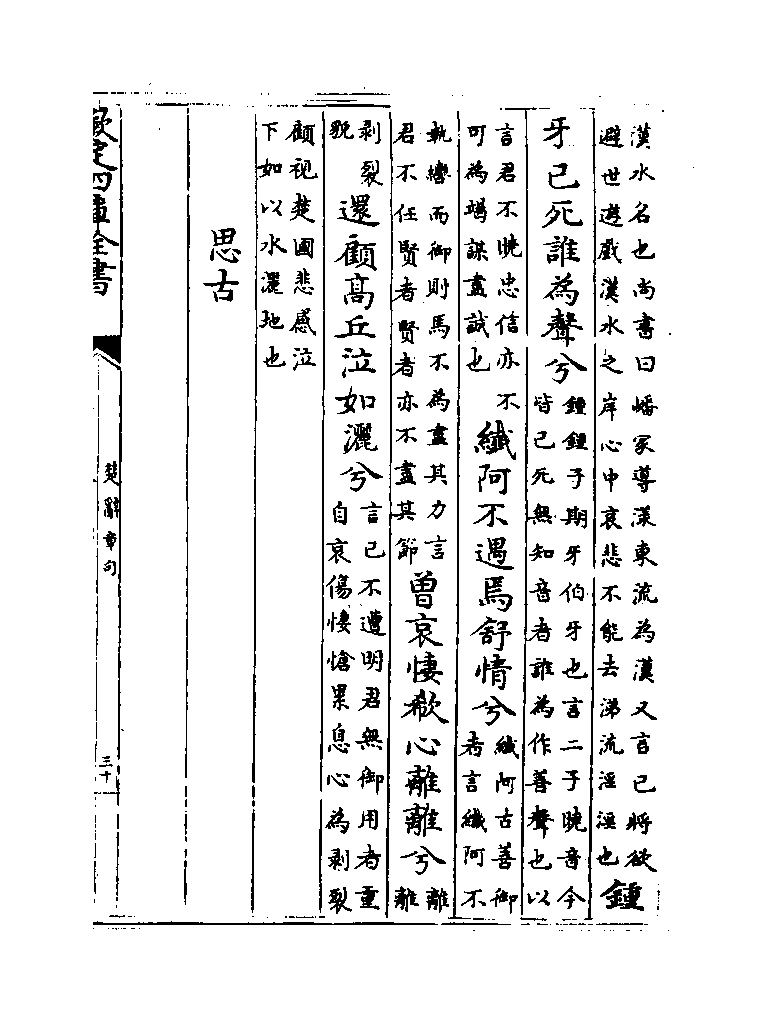 漢水名也尚書曰嶓冢導漾東流為漢又言己將欲
避世遊戲漢水之岸心中哀悲不能去涕流滛滛也
鍾
牙已死誰為聲兮
鍾鍾子期牙伯牙也言二子曉音今
皆已死無知音者誰為作善聲也以
言君不曉忠信亦不
可為竭謀盡誠也
纎阿不遇焉舒情兮
纎阿古善御
者言纎阿不
執轡而御則馬不為盡其力言
君不任賢者賢者亦不盡其節
曽哀悽欷心離離兮
離
離
剥裂
貌
還顧髙丘泣如灑兮
言己不遭明君無御用者重
自哀傷悽愴累息心為剥裂
顧視楚國悲感泣
下如以水灑地也
思古
欽定四庫全書
楚辭章句
三十